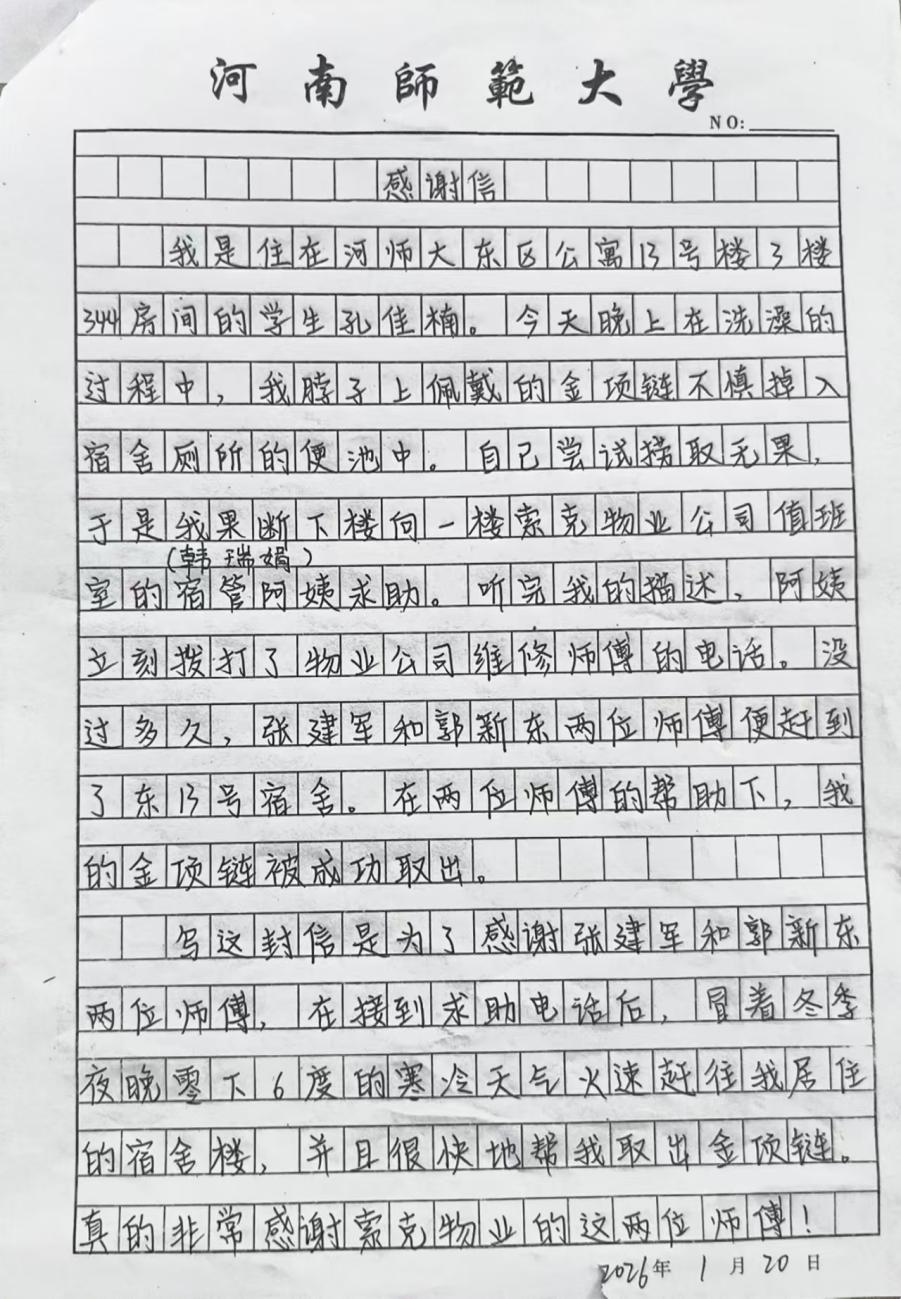 河南師範大學
NO:
感谢信
我是住在河师大东区公寓13号楼3楼
344房间的学生孔佳楠。今天晚上在洗澡的
过程中，我脖子上佩戴的金项链不慎掉入
宿舍厕所的便池中。自己尝试捞取无果，
于是我果断下楼向一楼索克物业公司值班
（韩瑞娟）
室的宿管阿姨求助。听完我的描述、阿姨
立刻拨打了物业公司维修师傅的电话。没
过多久，张建军和郭新东两位师傅便赶到
了东13号宿舍。在两位师傅的帮助下，我
的金项链被成功取出。
写这封信是为了感谢张建军和郭新东
两位师傅，在接到求助电话后，冒着冬季
夜晚零下6度的寒冷天气火速赶往我居住
的宿舍楼，并且很快地帮我取出金项链。
真的非常感谢索克物业的这两位师傅！
2026年1月20日